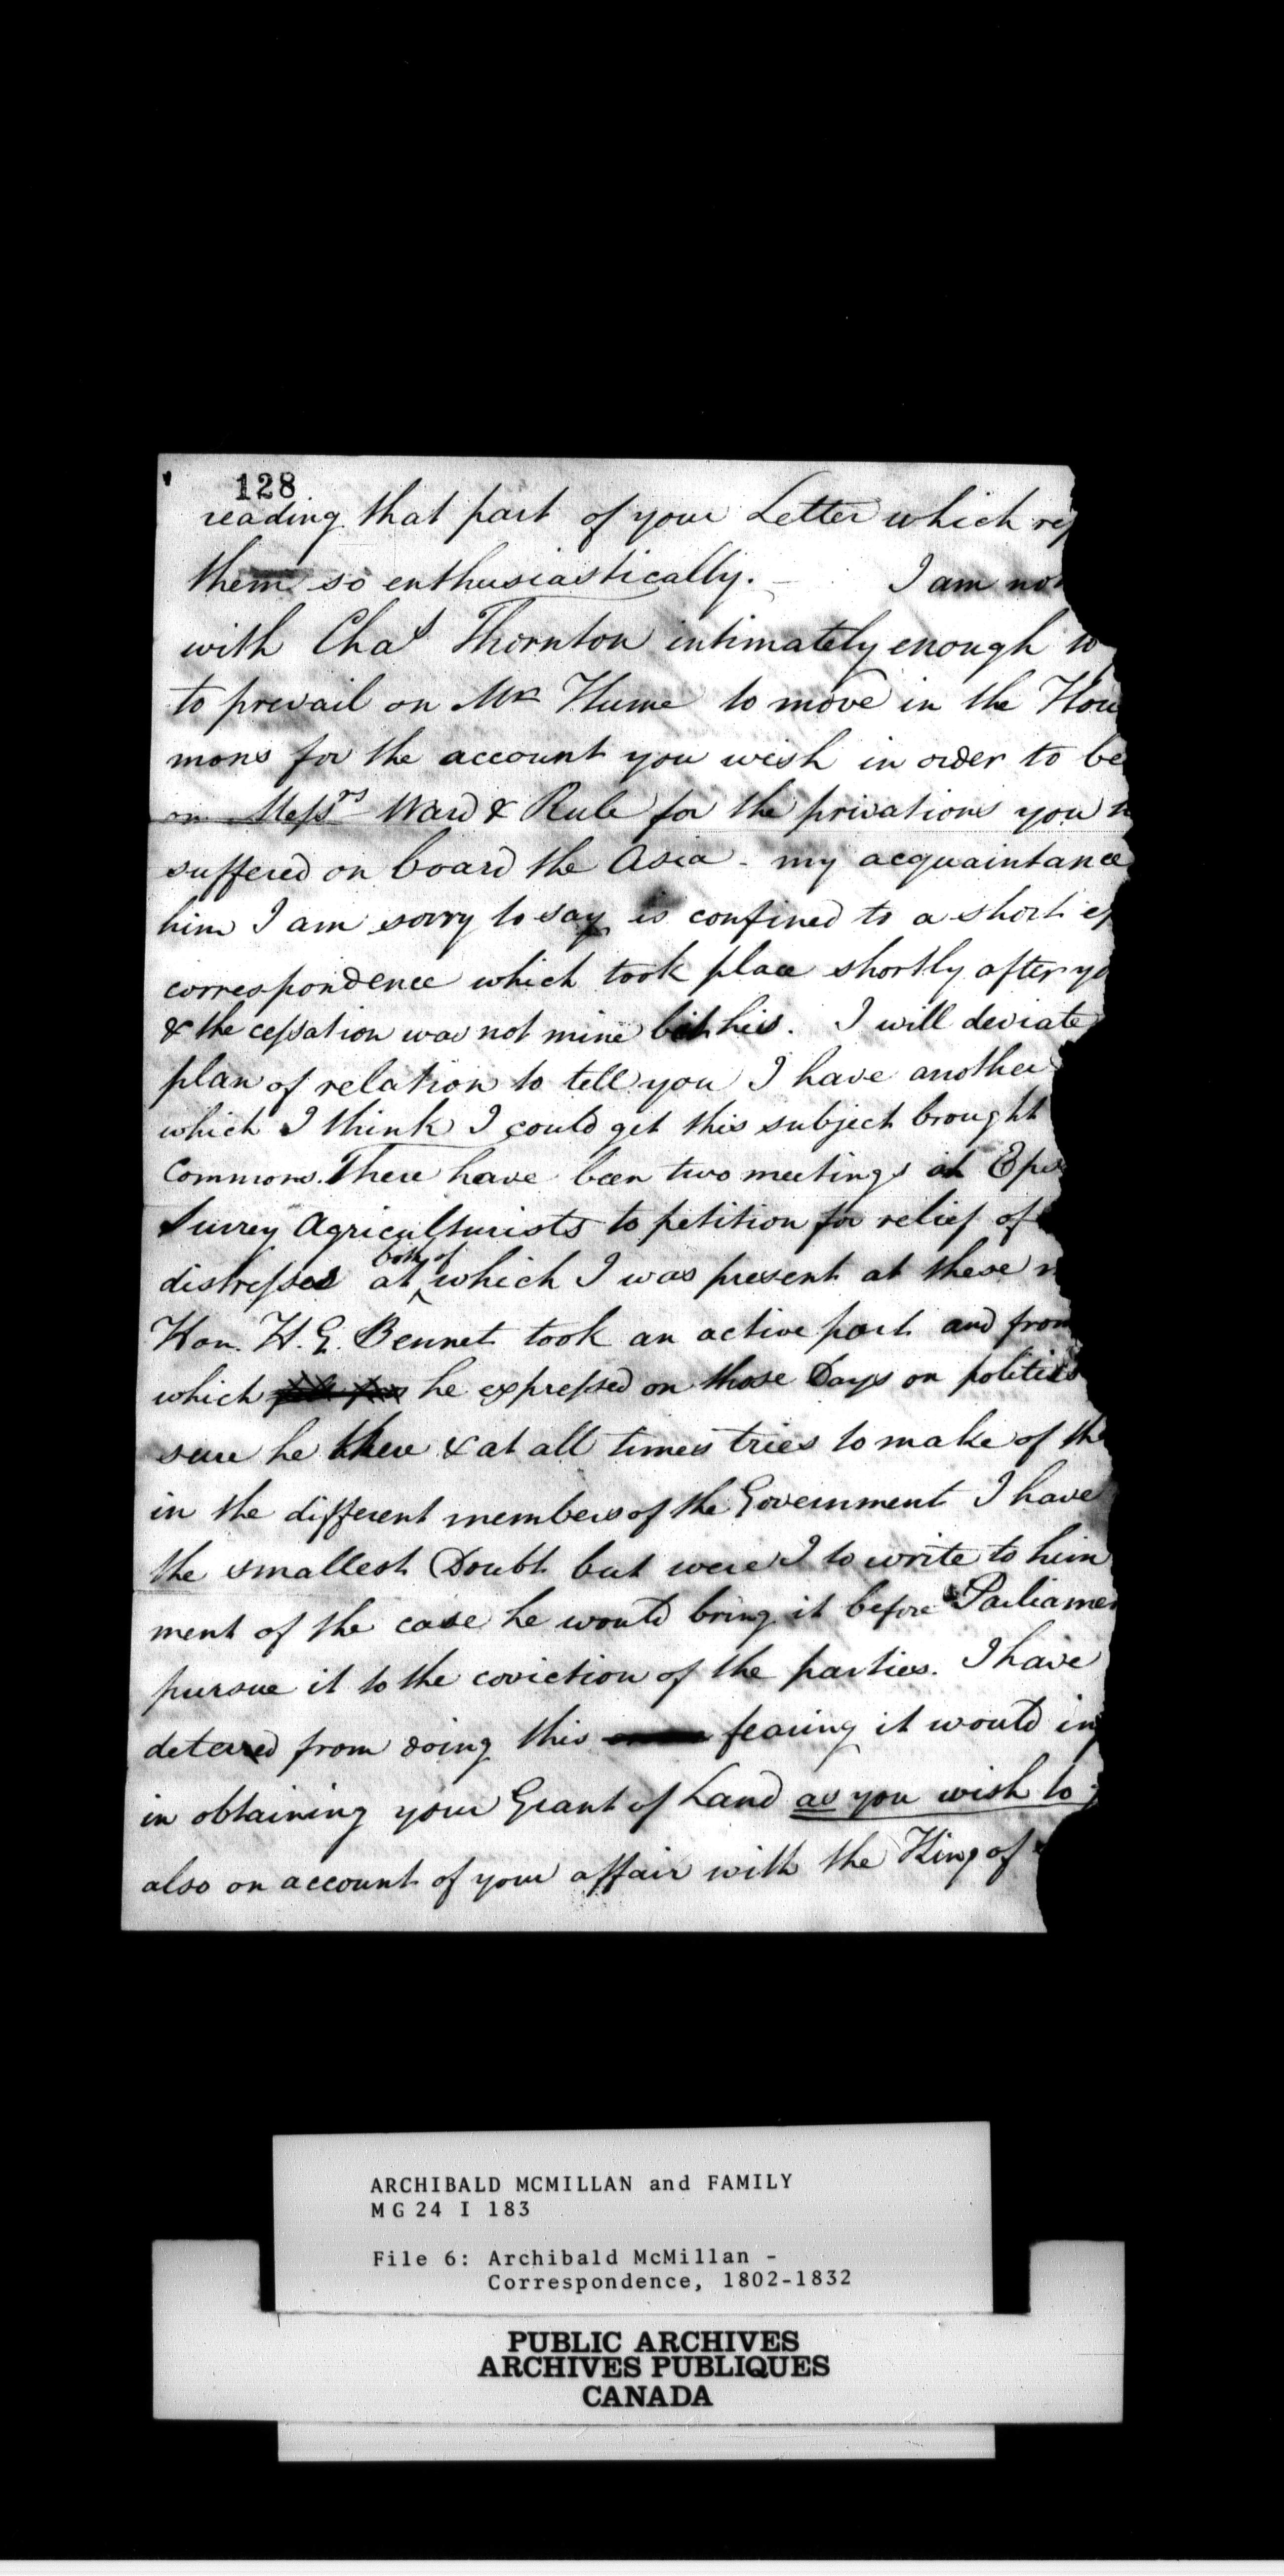 128
reading that part of your Letter which re
them so enthusiastically. — I am not
with Chas Thornton intimately enough to
to prevail on Mr Hume to move in the Hou
mons for the account you wish in order to be
on Messrs Ward & Rule for the privations you
suffered on board the Asia - my acquaintance
him I am sorry to say is confined to a short
correspondence which took place shortly after yo
& the cessation was not mine but his. I will deviate
plan of relation to tell you I have another
which I think I could get this subject brought
Commons. There have been two meetings at Eps
Surrey Agriculturists to petition for relief of
distresses at both of which I was present at these m
Hon. H. G. Bennet took an active part and from
which he expressed on those Days on politics
sure he there & at all times tries to make of the
in the different members of the Government I have
the smallest Doubt but were I to write to him
ment of the case he would bring it before Parliamen
pursue it to the coviction of the parties. I have
detered from doing this fearing it would in
in obtaining your Grant of Land as you wish to
also on account of your affair with the King of
ARCHIBALD MCMILLAN and FAMILY
MG 24 I 183
File 6: Archibald McMillan -
Correspondence, 1802-1832
PUBLIC ARCHIVES
ARCHIVES PUBLIQUES
CANADA